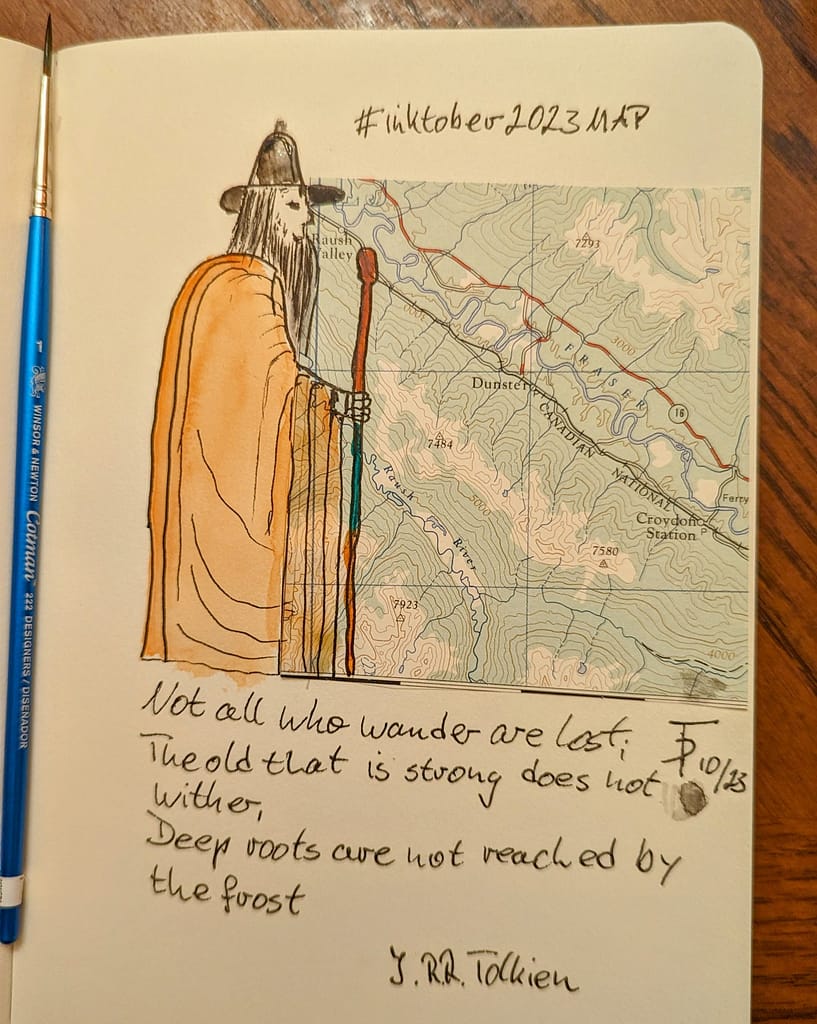 #inktober2023 MAP
Raush
Valley
7293
3000
FRASER
16
Dunster
CANADIAN NATIONAL
7484
Raush River
5000
Croydon
Station
Ferry
7580
7923
4000
Not all who wander are lost;
The old that is strong does not
wither,
Deep roots are not reached by
the frost
10/23
J.R.R. Tolkien
1 WINSOR & NEWTON Cotman 222 DESIGNERS / DISENADOR